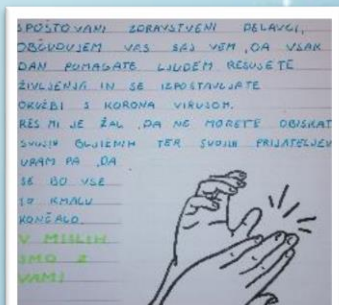 SPOŠTOVANI ZDRAVSTVENI DELAVCI,
OBČUDUJEM VAS SAJ VEM, DA VSAK
DAN POMAGATE LJUDEM REŠUJETE
ŽIVLJENJA IN SE IZPOSTAVLJATE
OKUŽBI S KORONA VIRUSOM.
RES MI JE ŽAL, DA NE MORETE OBISKAT
SVOJIH BLIŽNIH TER SVOJIH PRIJATELJEV
UPAM PA, DA
SE BO VSE
TO KMALU
KONČALO.
V MISLIH
SMO Z
VAMI